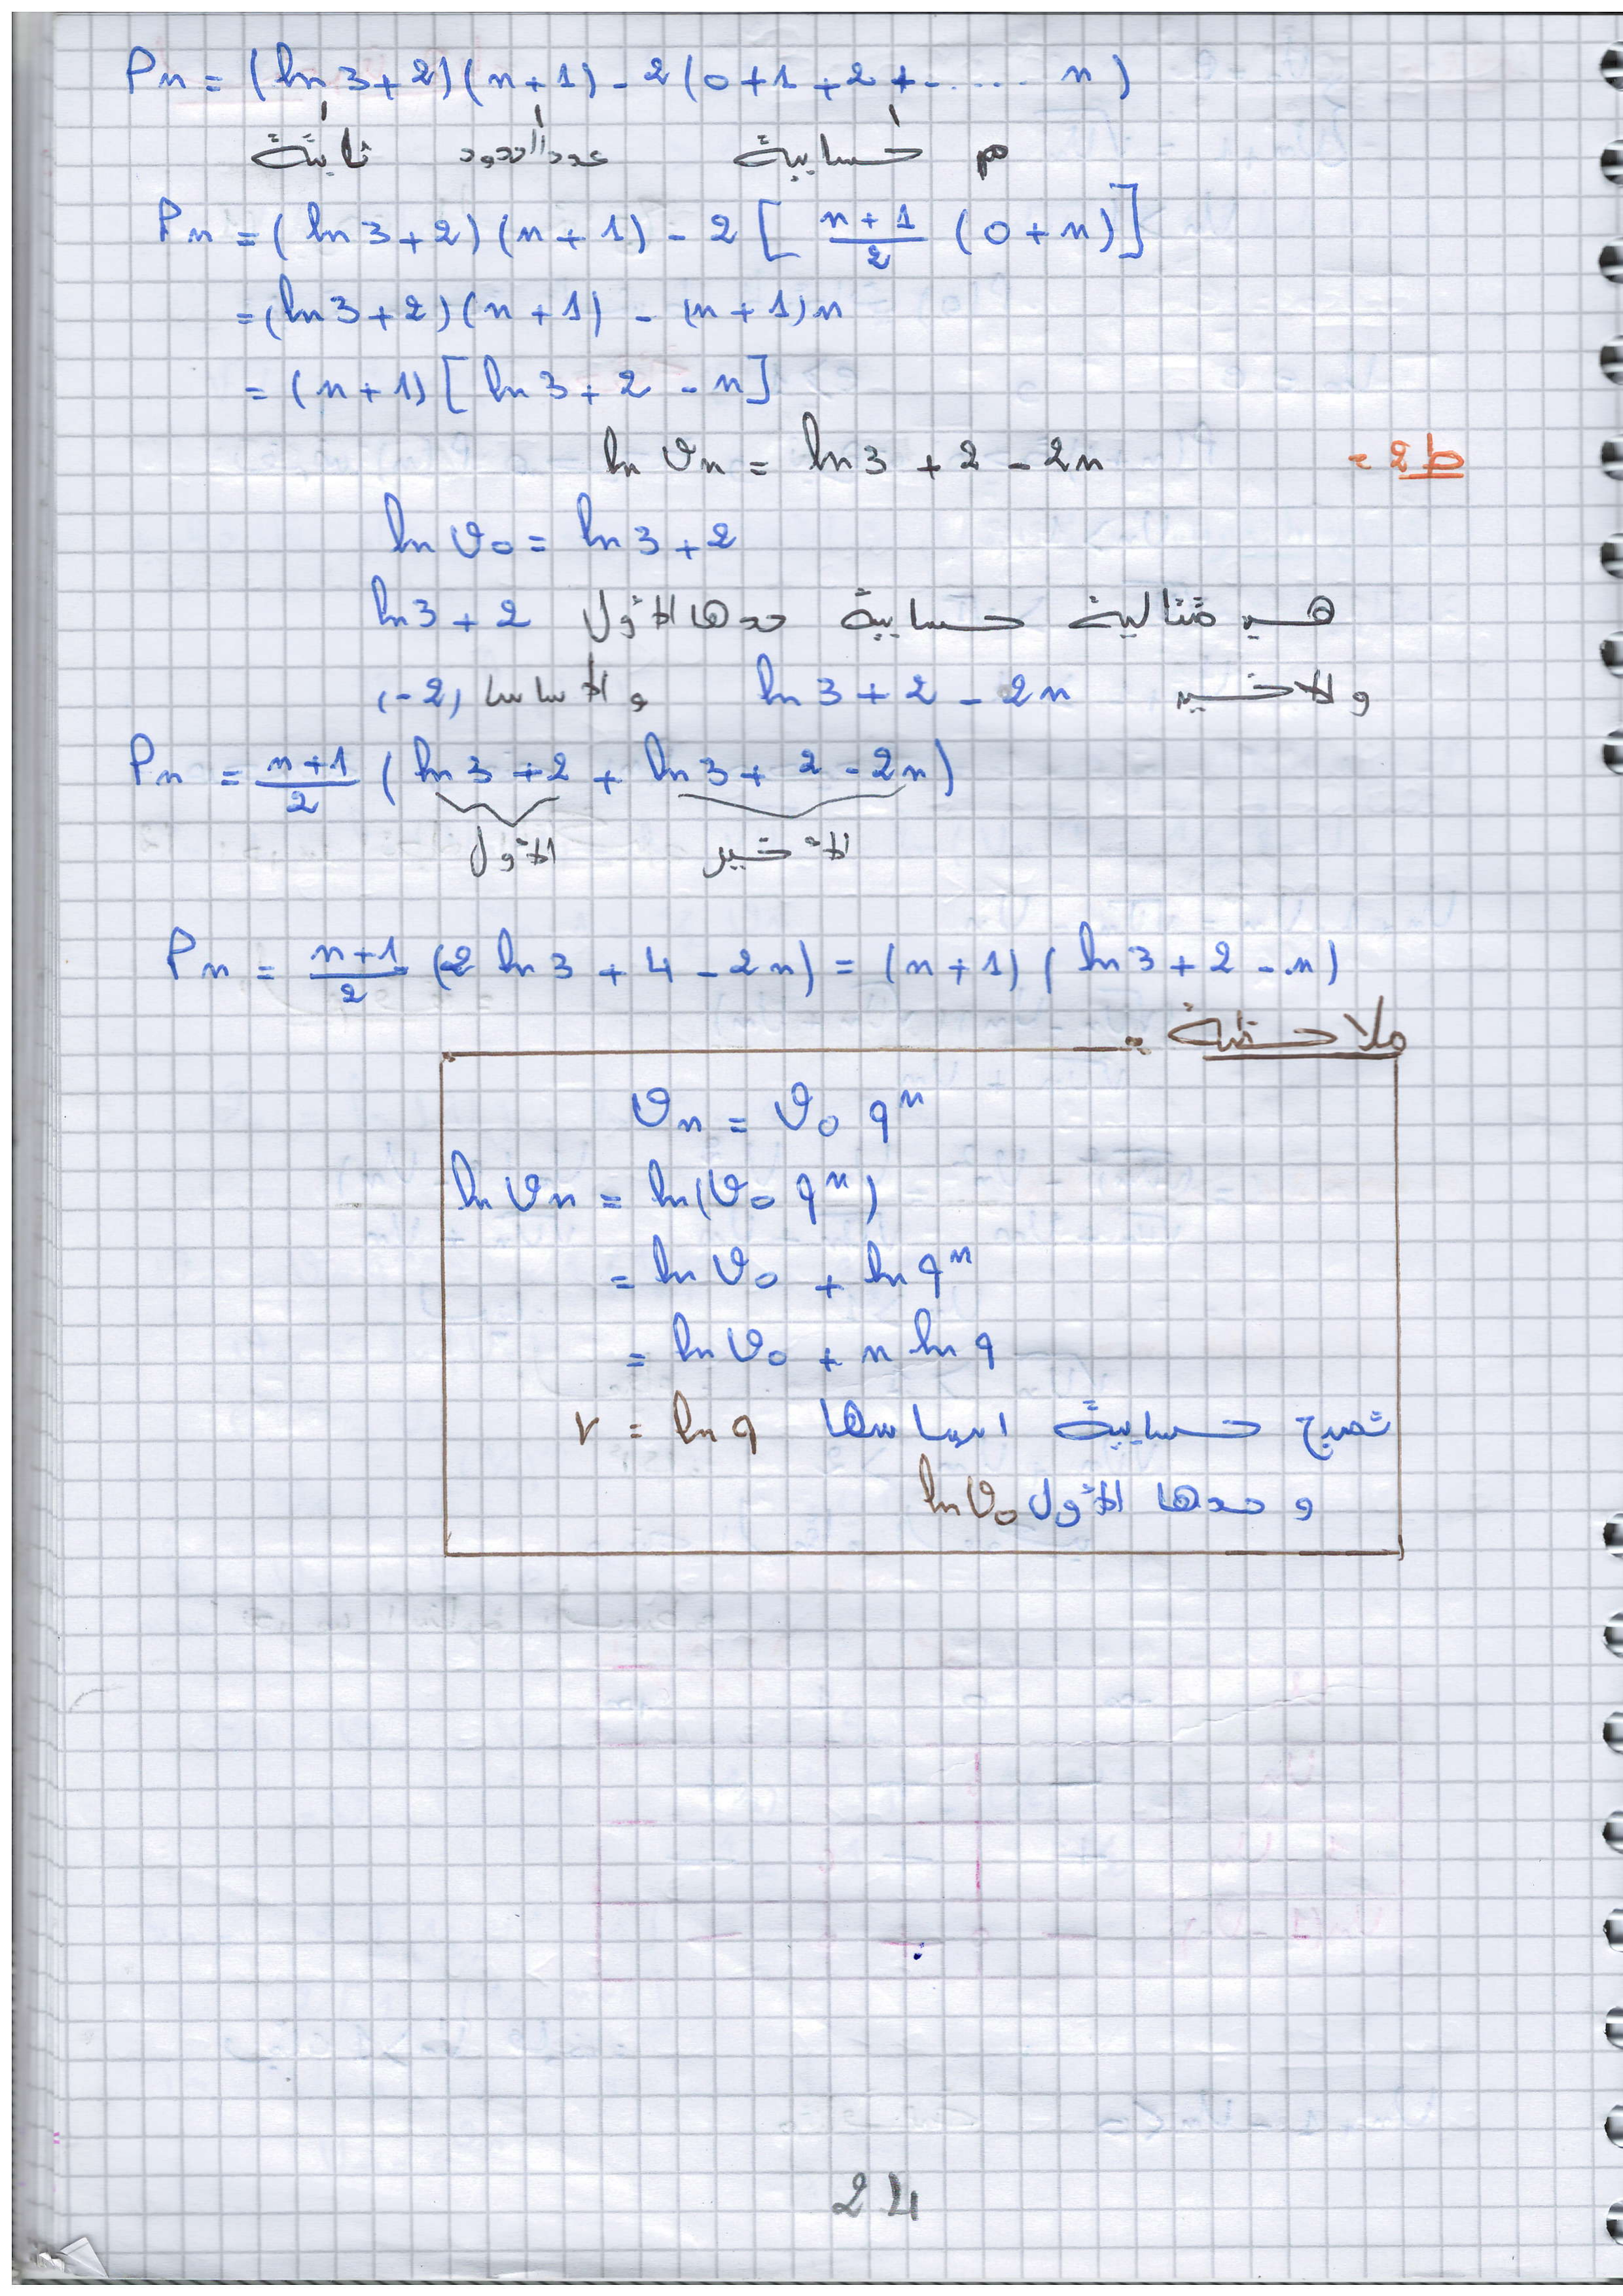 Pn = (ln 3 + 2)(n + 1) - 2(0 + 1 + 2 + ..... n)
ثابتة عدد الحدود م حسابية
Pn = (ln 3 + 2)(n + 1) - 2 [ (n + 1)/2 (0 + n) ]
= (ln 3 + 2)(n + 1) - (n + 1)n
= (n + 1) [ ln 3 + 2 - n ]
ط2 = ln vn = ln 3 + 2 - 2n
ln v0 = ln 3 + 2
هي متتالية حسابية حدها الأول ln 3 + 2
والأخير ln 3 + 2 - 2n والأساس (-2)
Pn = (n + 1)/2 (ln 3 + 2 + ln 3 + 2 - 2n)
الأول الأخير
Pn = (n + 1)/2 (2 ln 3 + 4 - 2n) = (n + 1)(ln 3 + 2 - n)
ملاحظة :
vn = v0 q^n
ln vn = ln(v0 q^n)
= ln v0 + ln q^n
= ln v0 + n ln q
تصبح حسابية اساسها r = ln q
و حدها الأول ln v0
24